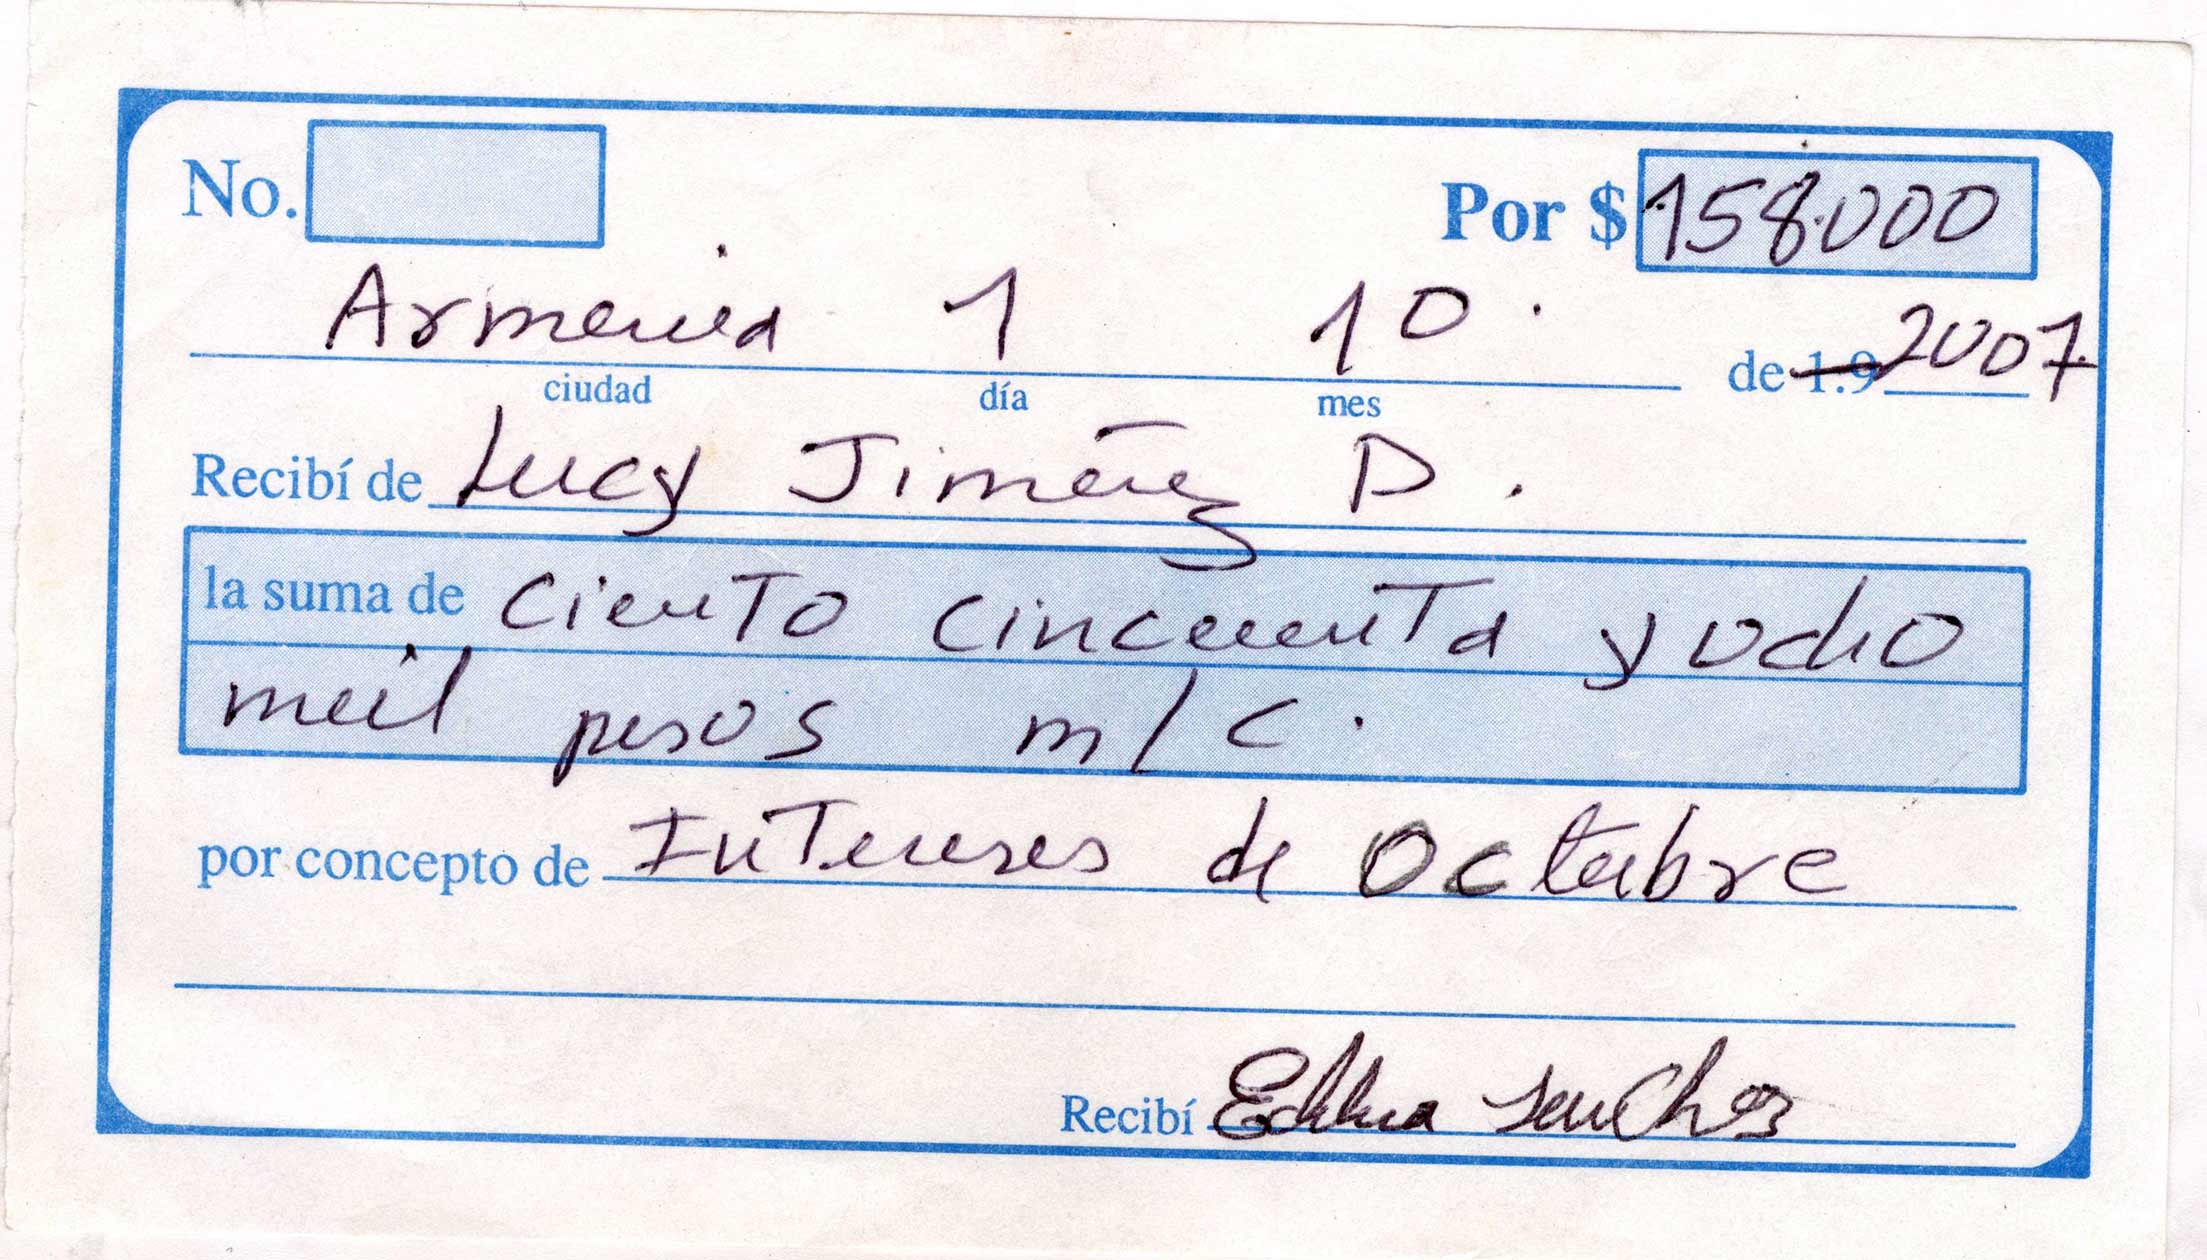 No. Por $ 158.000
Armenia 1 10. de 1.9 2007
ciudad día mes
Recibí de Lucy Jiménez D.
la suma de Ciento Cincuenta y ocho
mil pesos m/c.
por concepto de Intereses de Octubre
Recibí Sanchez